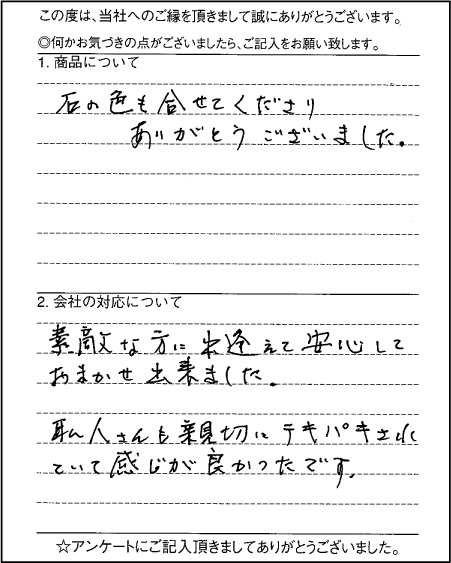 この度は、当社へのご縁を頂きまして誠にありがとうございます。
◎何かお気づきの点がございましたら、ご記入をお願い致します。
1. 商品について
石の色も合せてくださり
ありがとうございました。
2. 会社の対応について
素敵な方に出逢えて安心して
おまかせ出来ました。
職人さんも親切にテキパキされ
ていて感じが良かったです。
☆アンケートにご記入頂きましてありがとうございました。